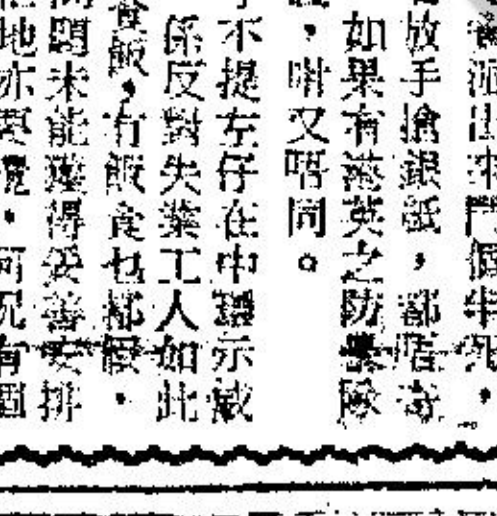 涌出來鬥個半死，
放手搶銀紙，都唔奇
如果有港英之防暴隊
，咁又唔同。
不提左仔在中環示威
係反對失業工人如此
食飯，有飯食乜都假，
問題未能獲得妥善安排
地亦要攪，何況有個